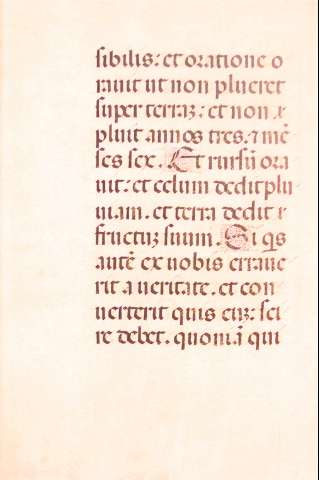 sibilis: et oratione o
rauit ut non plueret
super terraʒ: et non
pluit annos tres. ⁊ mē
ses sex. Et rursū ora
uit: et celum dedit plu
uiam. et terra dedit
fructuʒ suum. Si q̄s
autē ex uobis erraue
rit a ueritate. et con
uerterit quis euʒ: sci
re debet. quoniā qui